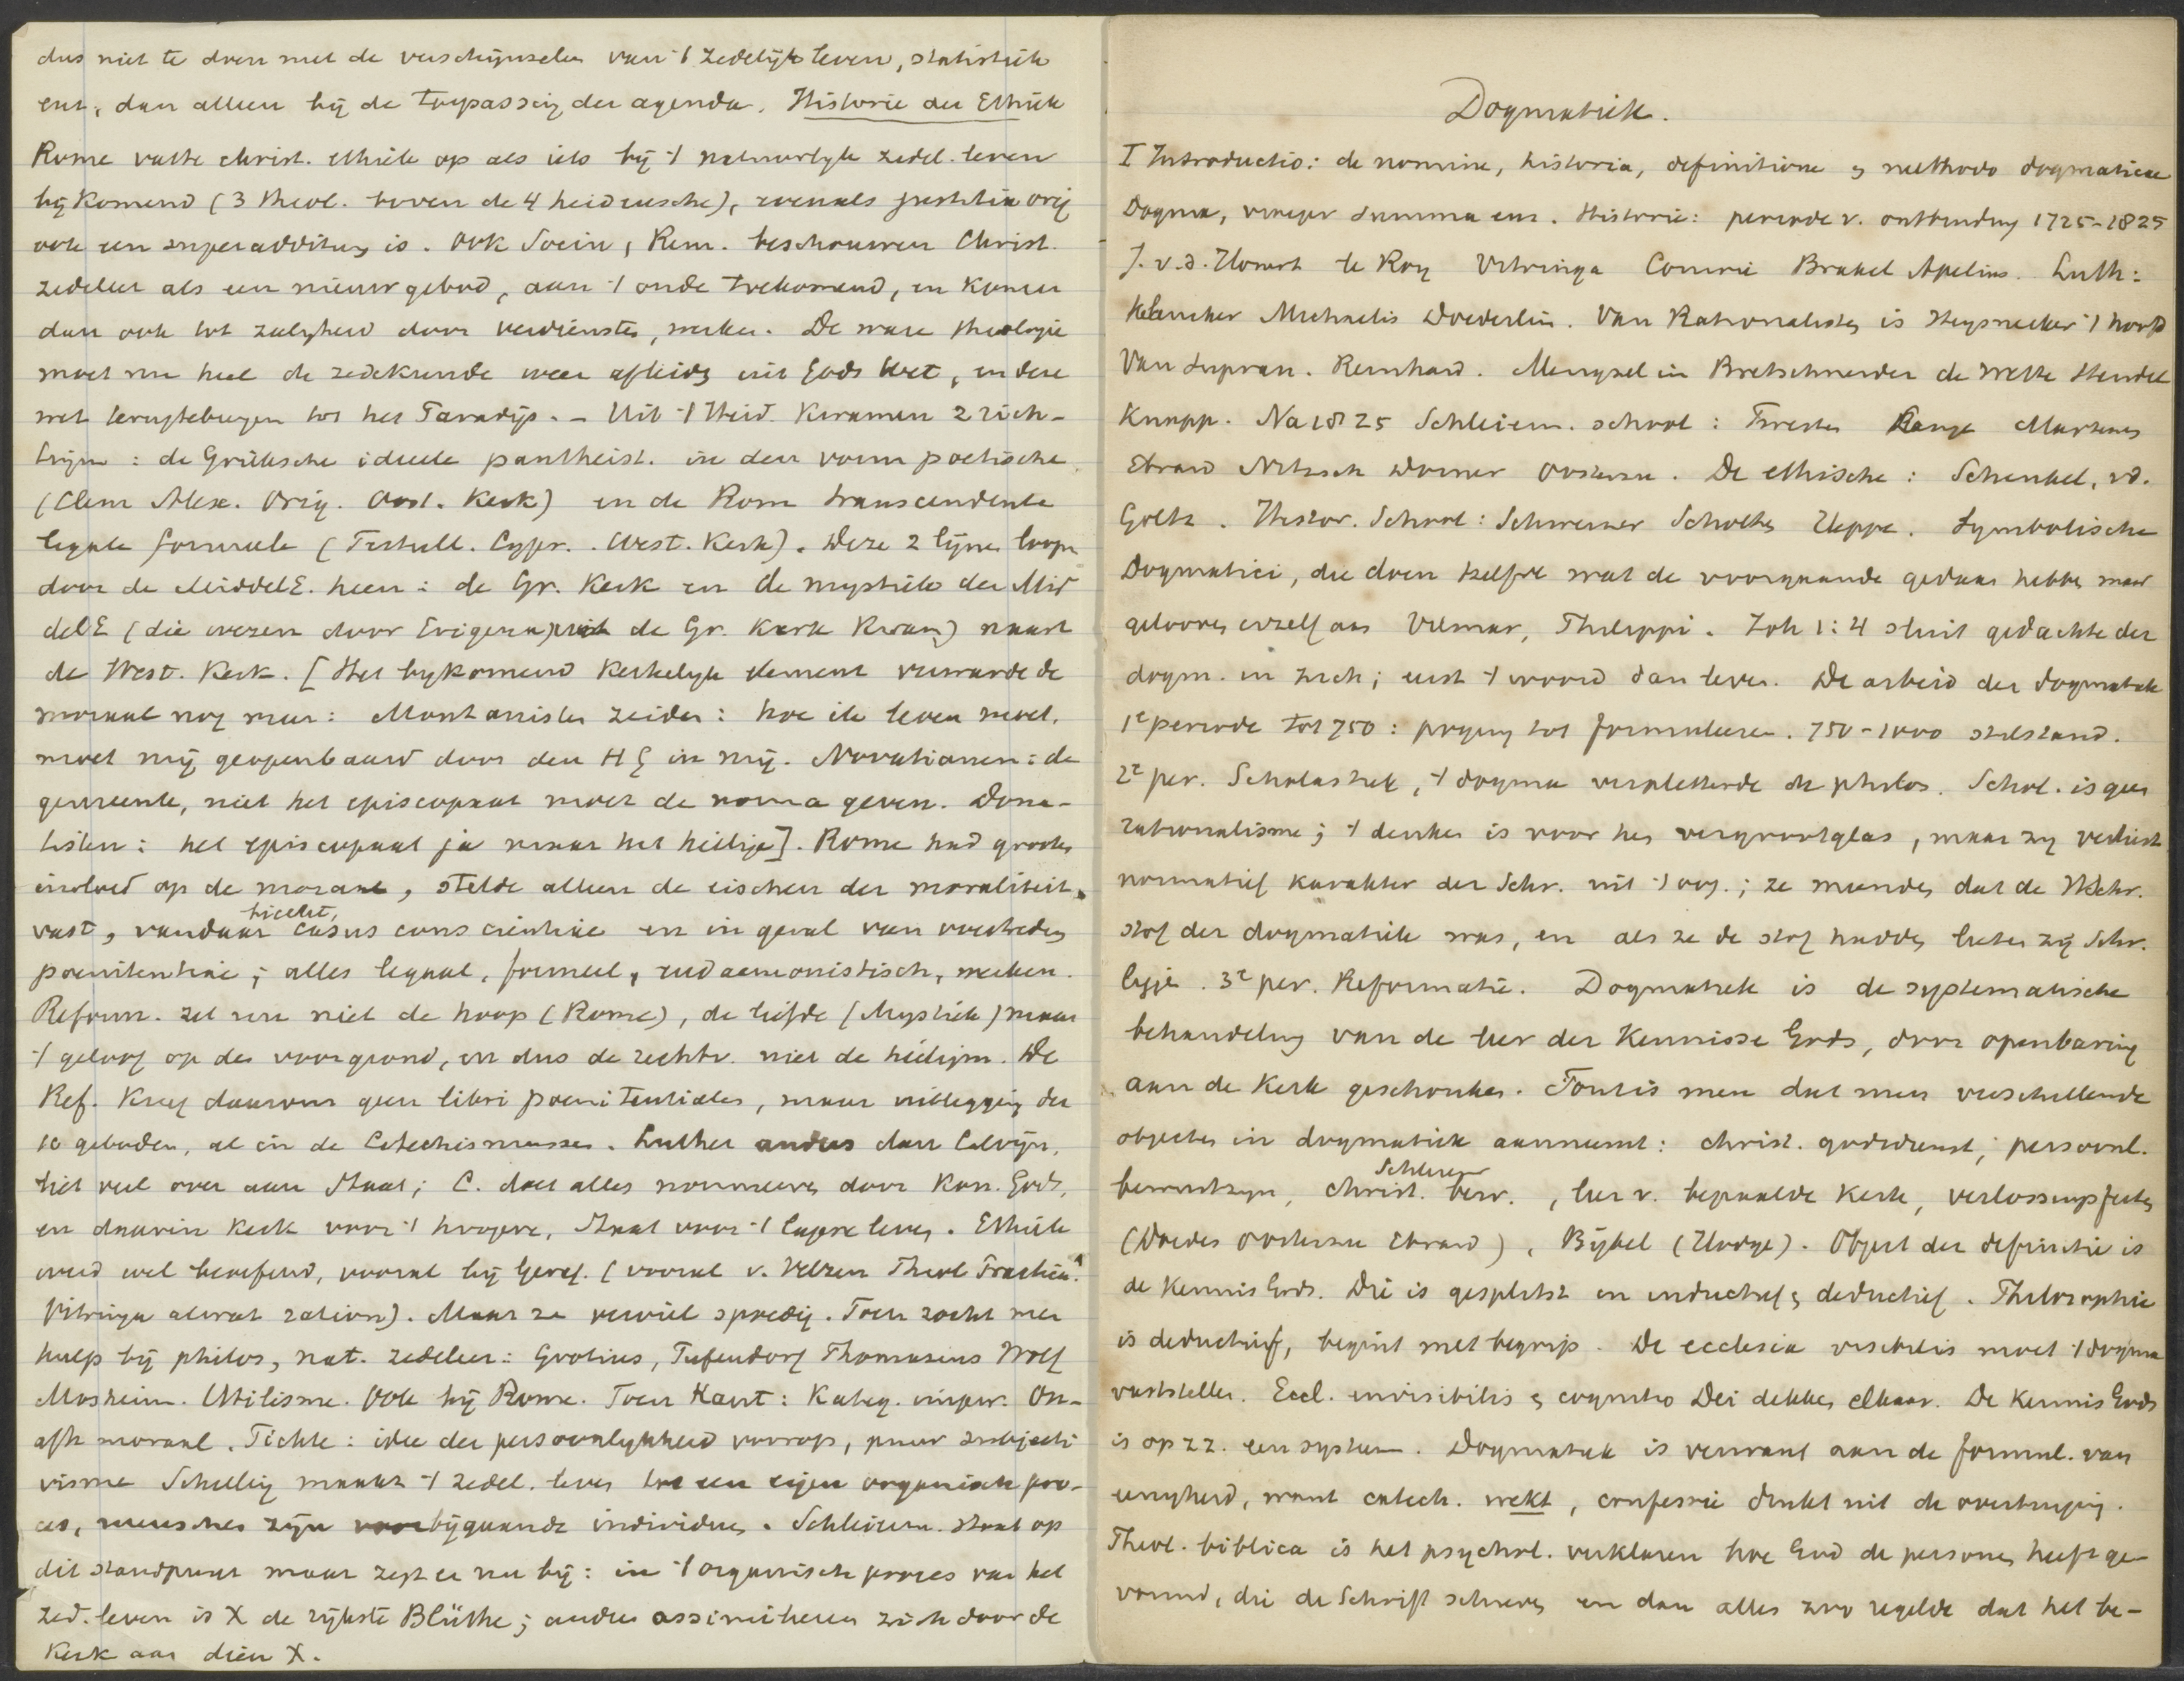 dus niet te doen met de verschijnselen van 't zedelijk leven, statistiek
enz., dan alleen bij de toepassing der agenda. Historie der Ethiek
Rome vatte christ. ethiek op als iets bij 't natuurlyk zedel. leven
bijkomend (3 theol. boven de 4 heidensche), evenals justitia orig
ook een superadditum is. Ook Socin, Rem. beschouwen Christ.
zedeleer als een nieuw gebod, aan 't oude toekomend, en komen
dan ook tot zaligheid door verdiensten, werken. De ware theologie
moet nu heel de zedekunde weer afleiden uit Gods Wet, en deze
wet terugtebrengen tot het Paradijs. – Uit 't Heid. kwamen 2 rich-
lijnen: de Grieksche ideele pantheist. in den vorm poetische
(Clem Alex. Orig. Oost. Kerk) en de Rom transcendente
legale formeele (Tertull. Cypr. West. Kerk). Deze 2 lijnen loopen
door de MiddelE. heen: de Gr. Kerk en de mystiek der Mid
delE (die wezen door Erigena uit de Gr. Kerk kwam) naast
de West. Kerk. [Het bykomend kerkelyk element verwarde de
moraal nog meer: Montanisten zeiden: hoe ik leven moet,
moet mij geopenbaard door den HG in mij. Novatianen: de
gemeente, niet het episcopaat moet de norma geven. Dona-
tisten: het episcopaat ja maar het heilige]. Rome had grooten
invloed op de moraal, stelde alleen de eischen der moraliteit
vast, vandaar biecht, casus conscientiae en in geval van overtreding
poenitentiae; alles legaal, formeel, eudaemonistisch, werken.
Reform. zet nu niet de hoop (Rome), de liefde (Mystiek) maar
't geloof op den voorgrond, en dus de rechtv. niet de heiligm. De
Ref. kreeg daarom geen libri poenitentiales, maar uitlegging der
10 geboden, al in de Catechismussen. Luther anders dan Calvijn,
liet veel over aan Staat; C. doet alles normeeren door Kon. Gods,
en daarin Kerk voor 't hoogere, Staat voor 't lagere leven. Ethiek
werd wel beoefend, vooral bij Geref. (vooral v. Velzen Theol Practica.
Vitringa alweer ration). Maar ze verviel spoedig. Toen zocht men
hulp bij philos, nat. zedeleer: Grotius, Pufendorf Thomasius Wolf
Mosheim. Utilisme. Ook bij Rome. Toen Kant: Kateg. imper. On-
afh moraal. Fichte: idee der persoonlykheid voorop, puur subjecti
visme Schelling maakt 't zedel. leven tot een eigen organisch pro-
ces, menschen zijn voorbijgaande individuen. Schleierm. staat op
dit standpunt maar zegt er nu bij: in 't organisch proces van het
zed. leven is X de rijkste Blüthe; andere assimileeren zich door de
Kerk aan dien X.
Dogmatiek.
I Introductio: de nomine, historia, definitione & methodo dogmaticae
Dogma, vroeger Summa enz. Historie: periode v. ontbinding 1725–1825
J. v.d. Honert te Roy Vitringa Comrie Brakel Apelius. Luth:
Michaelis Doederlein. Van Rationalisten is Wegscheider 't hoofd
Van Supran. Reinhard. Mengsel in Bretschneider de Wette Steudel
Knapp. Na 1825 Schleierm. school: Twesten Lange Martensen
Ebrard Nitzsch Dorner Oosterzee. De ethische: Schenkel, vd.
Goltz. Histor. School: Schweizer Scholten Heppe. Symbolische
Dogmatici, die doen hetzelfde wat de voorgaande gedaan hebben maar
gelooven erzelf aan Vilmar, Philippi. Joh 1:4 sluit gedachte der
dogm. in zich; eerst 't woord dan leven. De arbeid der dogmatiek
1e periode tot 750: poging tot formuleeren. 750–1000 stilstand.
2e per. Scholastiek, 't dogma verpletterde de philos. Schol. is geen
rationalisme; 't denken is voor hen vergrootglas, maar zij verliest
normatief karakter der Schr. uit 't oog; ze meenden dat de HSchr.
stof der dogmatiek was, en als ze de stof hadden lieten zij Schr.
liggen. 3e per. Reformatie. Dogmatiek is de systematische
behandeling van de leer der Kennisse Gods, door openbaring
aan de Kerk geschonken. Fout is men dat men verschillende
objecten in dogmatiek aanneemt: christ. godsdienst, persoonl.
bewustzyn, christ. bew. Schleierm, leer v. bepaalde Kerk, verlossingsfeiten
(Doedes Oosterzee Ebrard), Bijbel (Hodge). Object der definitie is
de kennis Gods. Die is gesplitst in inductief & deductief. Philosophie
is deductief, begint met begrip. De ecclesia visibilis moet 't dogma
vaststellen. Eccl. invisibilis & cognitio Dei dekken elkaar. De kennis Gods
is op zz. een systeem. Dogmatiek is verwant aan de formul. van
eenigheid, want catech. wekt, confessie drukt uit de overtuiging.
Theol. biblica is het psychol. verklaren hoe God de personen heeft ge-
vormd, die de Schrift schreven en dan alles zoo regelde dat het be-